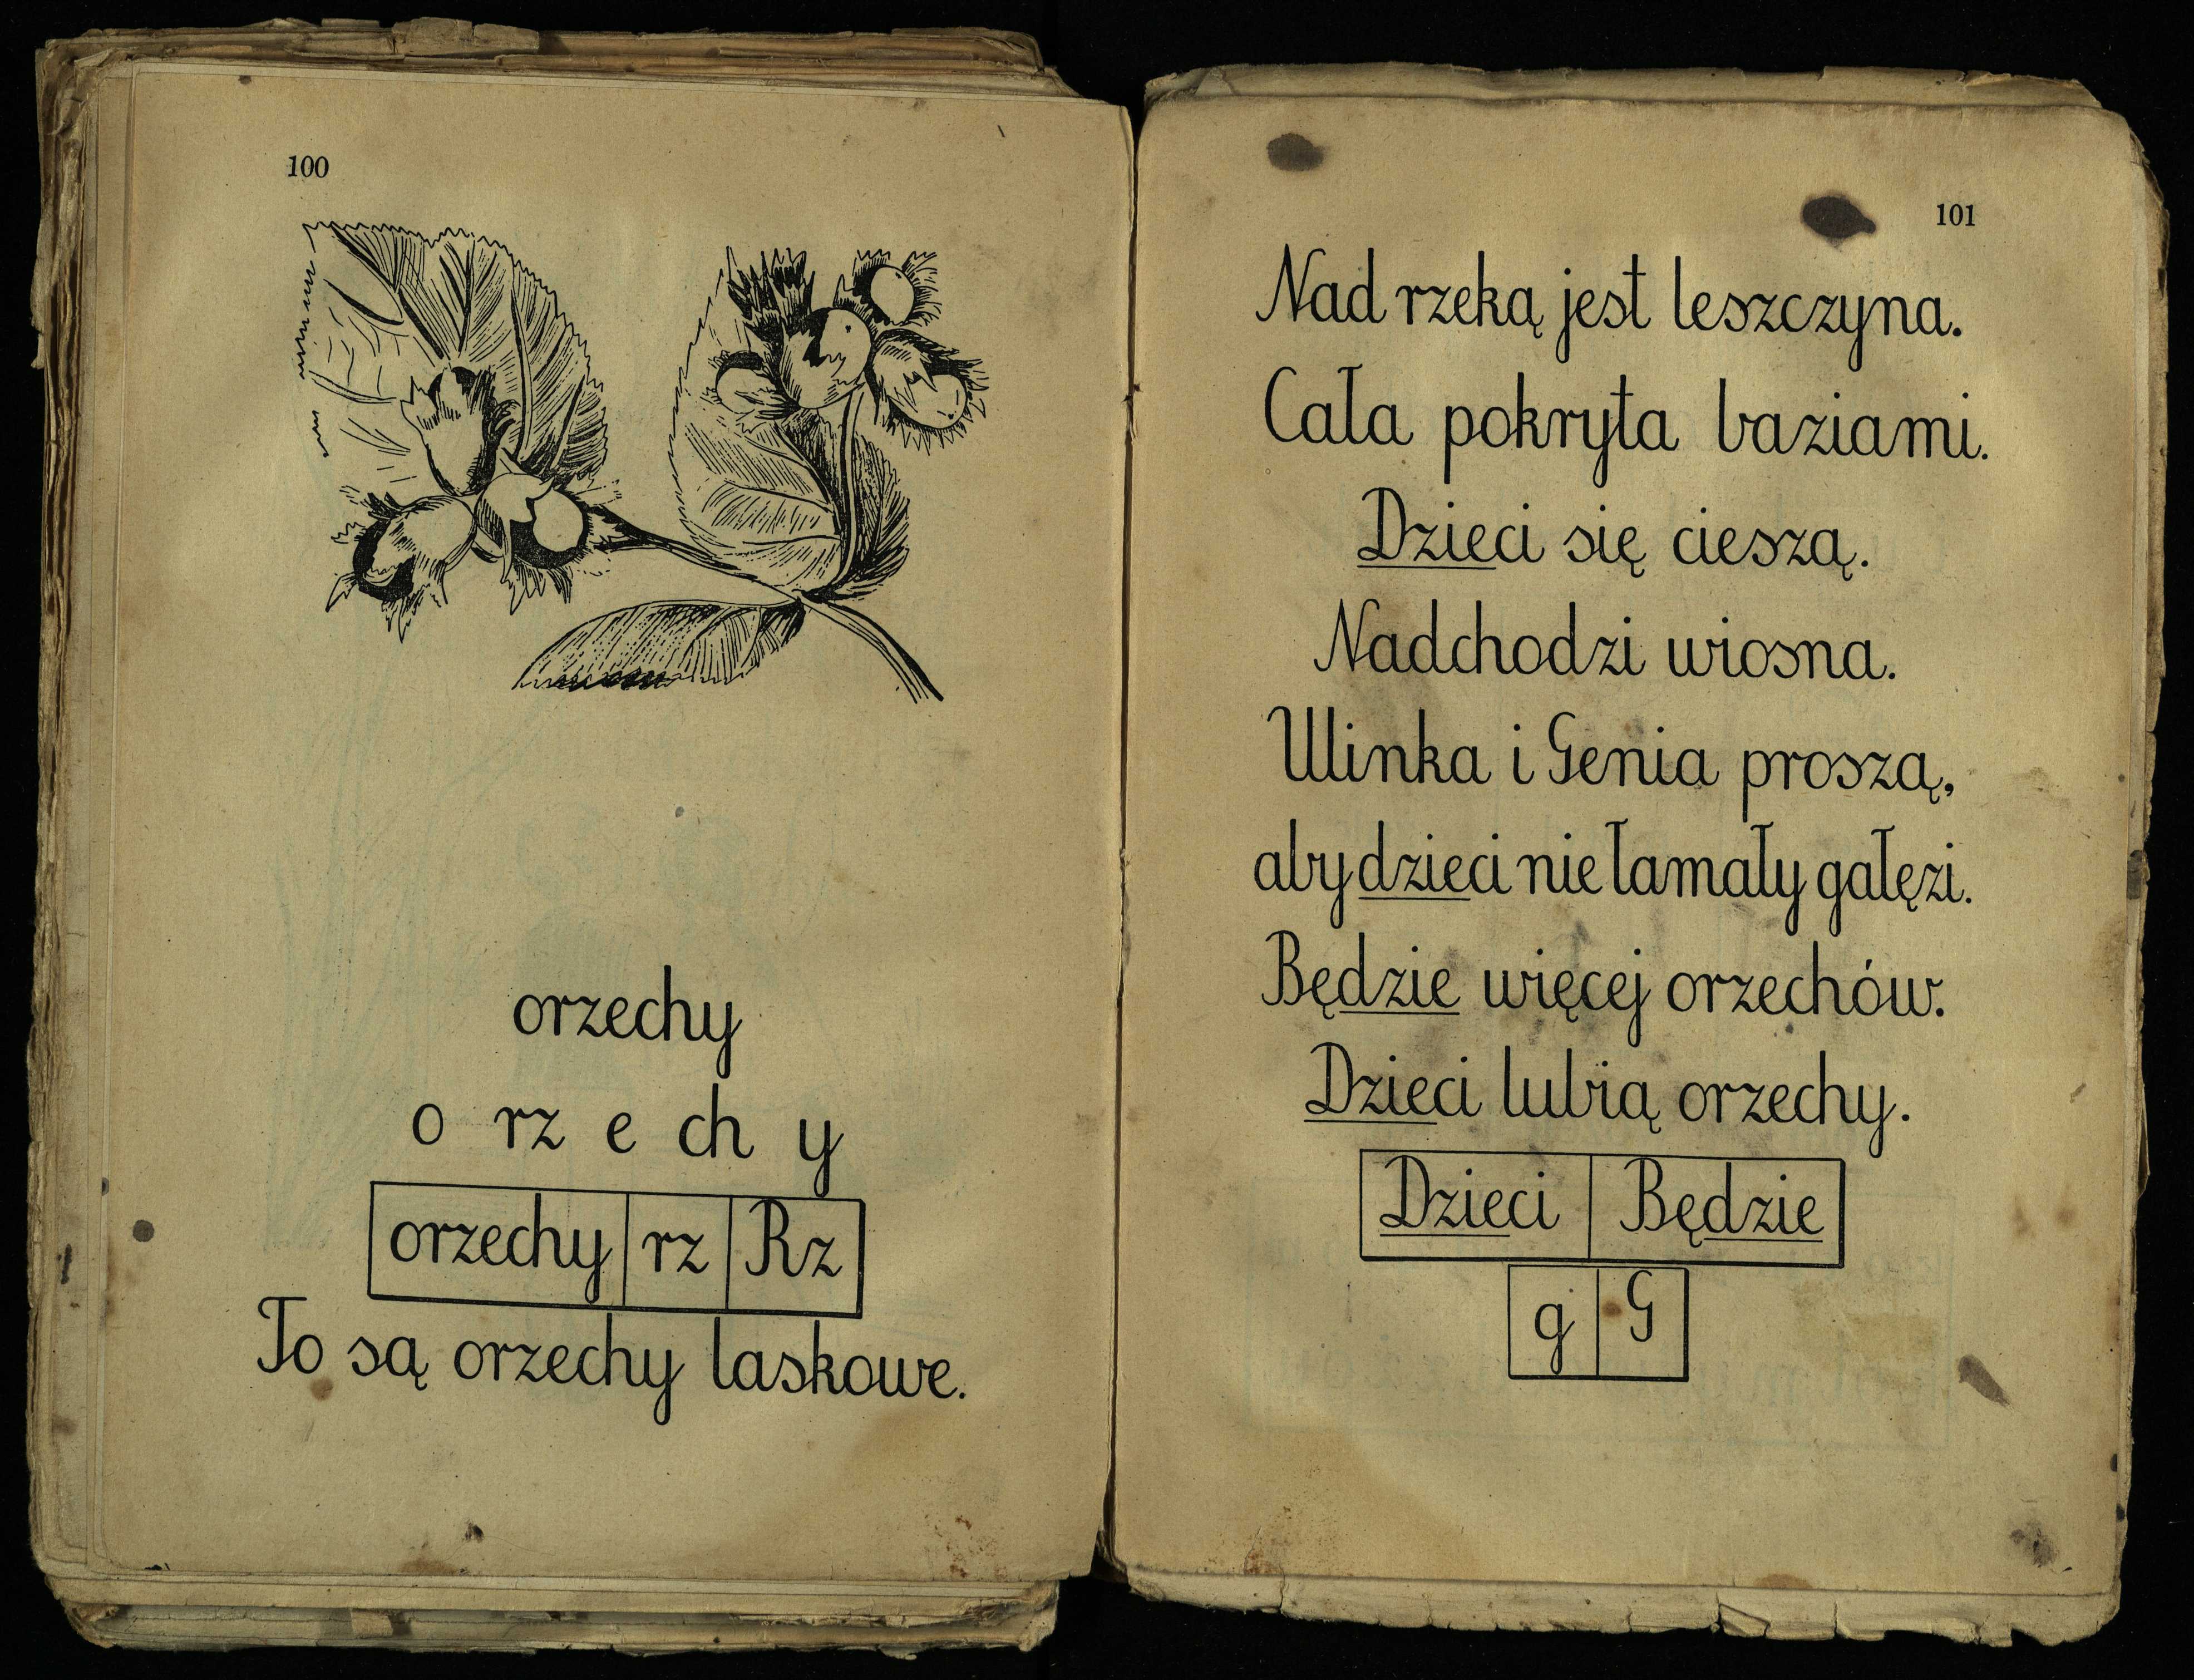 100
orzechy
o rz e ch y
orzechy rz Rz
To są orzechy laskowe.
101
Nad rzeką jest leszczyna.
Cała pokryta baziami.
Dzieci się cieszą.
Nadchodzi wiosna.
Winka i Genia proszą,
aby dzieci nie łamały gałęzi.
Będzie więcej orzechów.
Dzieci lubią orzechy.
Dzieci Będzie
g G